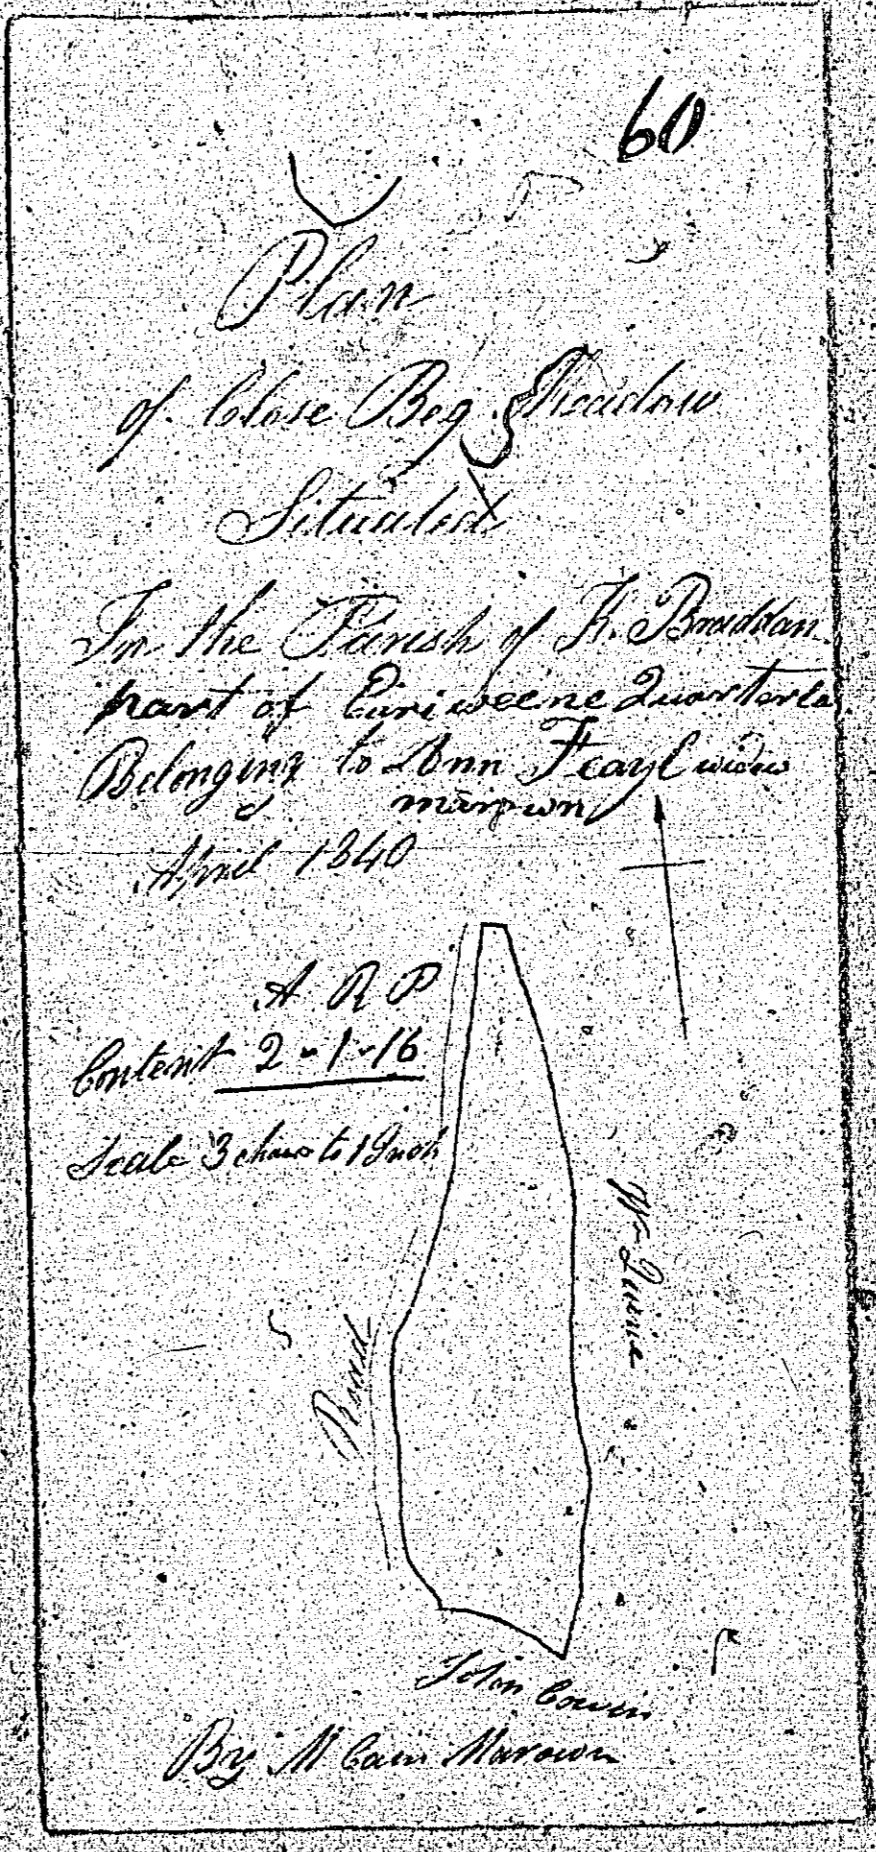 60
Plan
of Close Beg Meadow
Situated
In the Parish of K. Braddan
part of Quarterla
Belonging to Ann Fcayl widow
marown
April 1840
A R P
Content 2-1-16
Scale 3 chans to 1 Inch
Wm Quine
Road
John Cowin
By M Cain Marown